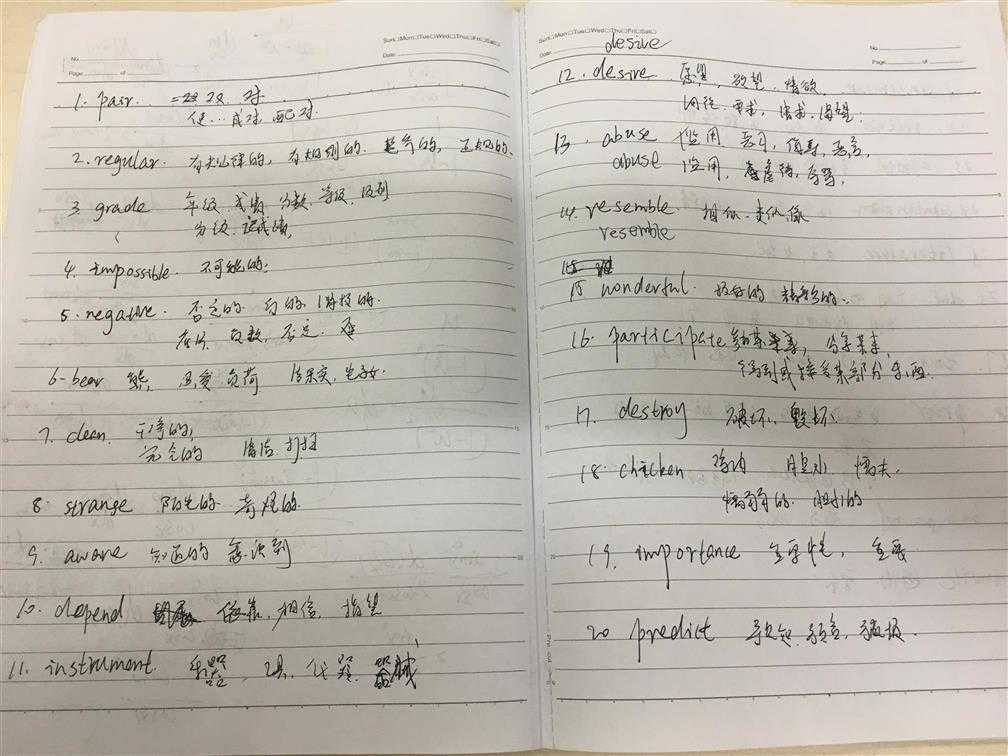 No
Page of
Sun□Mon□Tue□Wed□Thu□Fri□Sat□
Date
1. pair. 一双 双. 对
使…成对 配对
2. regular. 有规律的, 有规则的. 的, 正规的.
3. grade 年级. 成绩. 分数. 等级. 级别
分级.
4. impossible. 不可能的.
5. negative. 否定的 的 消极的.
负数, 否定.
6. bear 熊, 忍受 负荷 结果实,
7. clean. 干净的,
完全的 清洁. 打扫
8. strange 陌生的. 奇怪的.
9. aware 知道的 意识到
10. depend 依靠, 相信, 指望
11. instrument. 乐器, 仪器. 器械
Sun□Mon□Tue□Wed□Thu□Fri□Sat□
Date
No
Page of
desire
12. desire. 愿望, 欲望, 情欲.
要求, 请求. 渴望.
13. abuse 滥用 恶习,
abuse 滥用, 虐待,
14. resemble. 相似. 类似 像
resemble
15 wonderful. 极好的 精彩的.
16. participate 参加某事, 分享某事.
得到或接受某部分东西.
17. destroy 破坏. 毁坏.
18. chicken 鸡肉 胆小 懦夫.
懦弱的. 胆小的
19. importance 重要性, 重要
20 predict 预知. 预言,